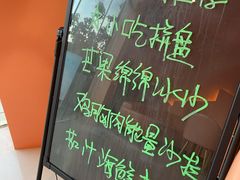 小吃拼盘
芒果绵绵冰沙
鸡胸肉能量沙拉
茄汁海鲜